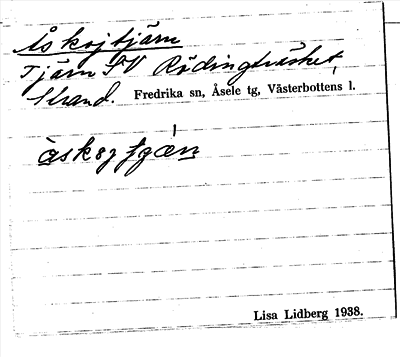 Åskojtjärn
Tjärn SV Rödingträsket,
Strand. Fredrika sn, Åsele tg, Västerbottens l.
Lisa Lidberg 1938.